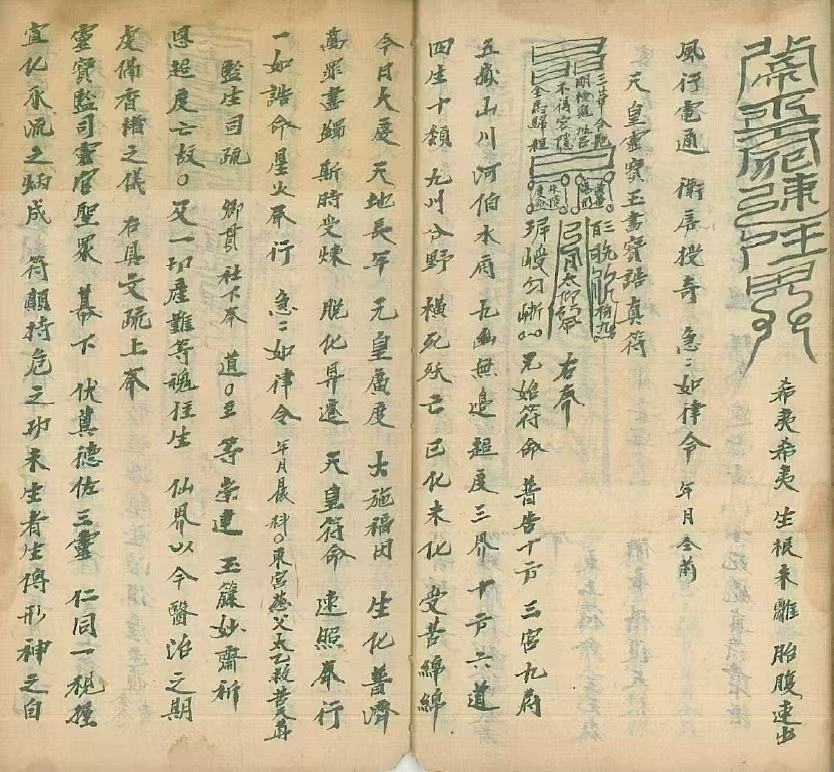 希夷希夷 生根未離 胎腹速出
風行電通 衛房授奇 急々如律令 年月全前
天皇靈寶玉書寶誥真符
右奔
元始符命 普告十方 三官九府
五嶽山川河伯水府 九幽無邊 超度三界 十方六道
四生十類 九州分野 橫死歿亡 已化未化 受苦綿綿
今日大慶 天地長年 元皇廣度 大施福田 生化普濟
萬罪盡蠲 斯時受煉 脱化昇遷 天皇符命 速照奉行
一如誥命 星火奉行 急々如律令 年月辰 科○東宮慈父太乙救苦天尊
監生司疏 鄉貫 社下奉 道○至 等崇建 玉籙妙齋祈
恩超度亡故○ 及一切產難等魂往生 仙界以今醫治之期
虔備香楮之儀 右具文疏上奉
靈寶監司靈官聖眾 幕下 伏冀德佐三靈 仁同一視
宣化承流之炳成 符顛持危之功未生者生傳形神之自